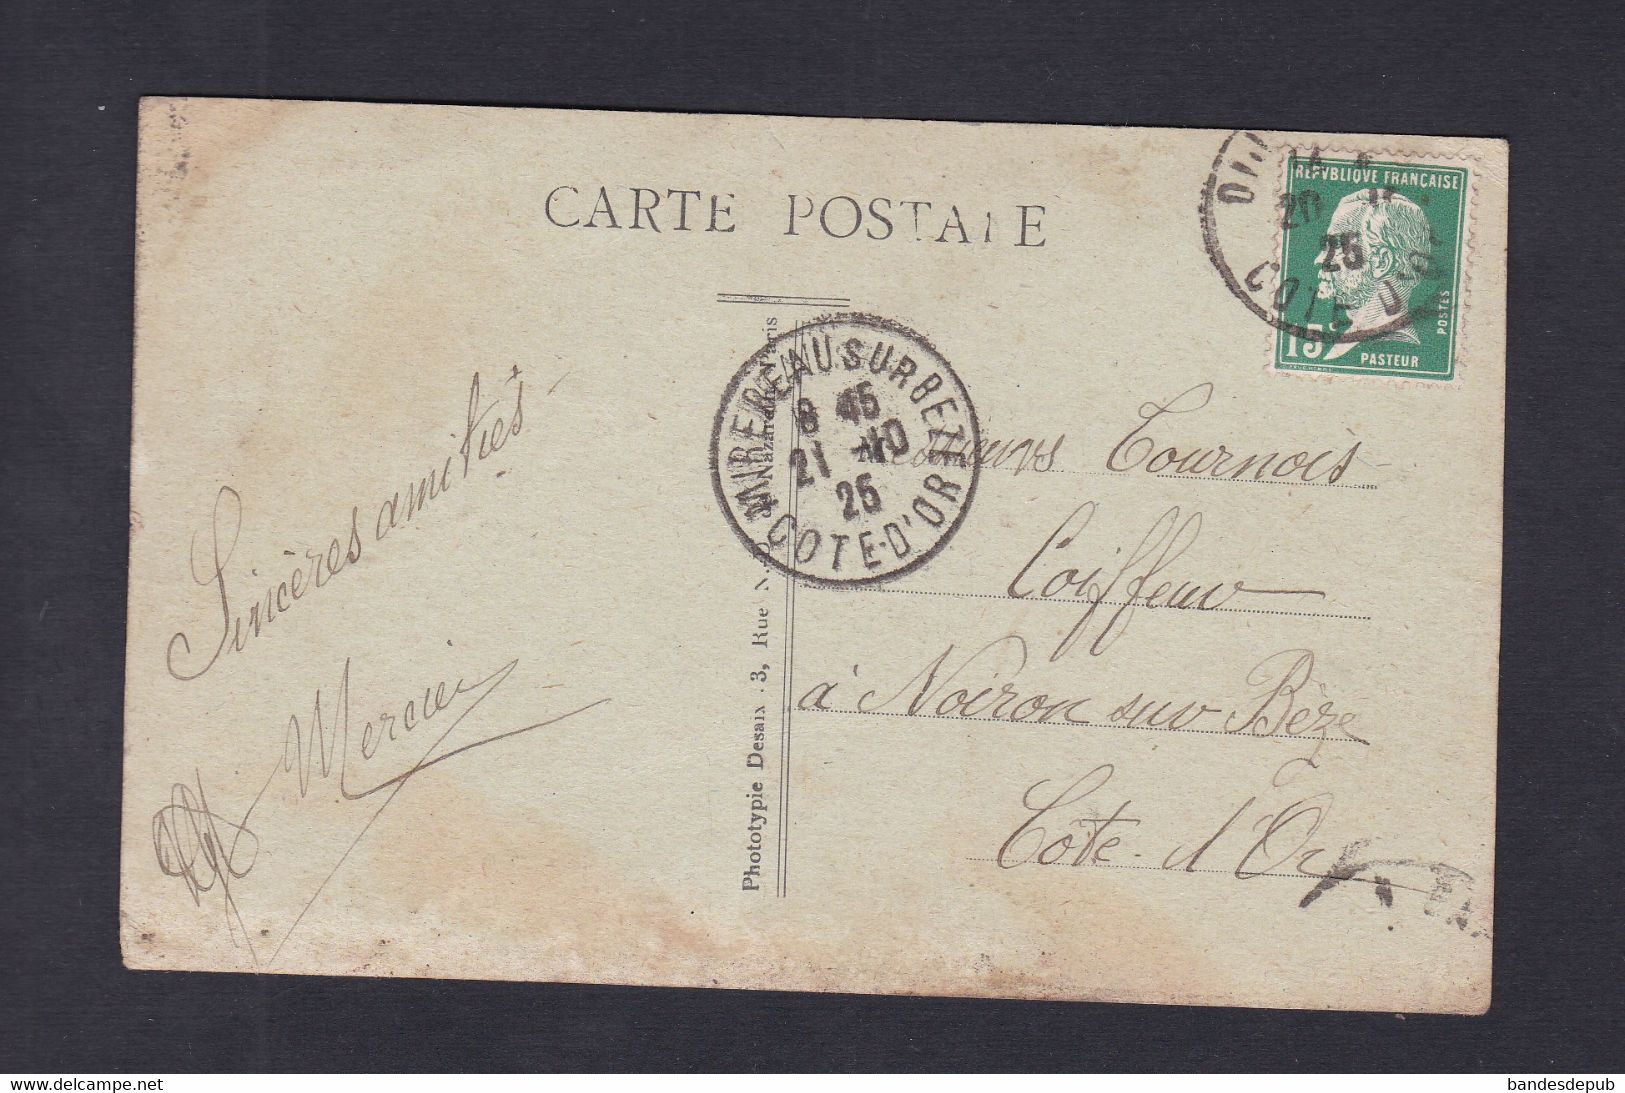 CARTE POSTALE
REPVBLIQUE FRANÇAISE
15c
PASTEUR
POSTES
20
25
COTE D'OR
MIREBEAU SUR BEZE
8 45
21 -10
25
COTE-D'OR
Sincères amitiés
Mercier
Tournois
Coiffeur
à Noiron sur Bèze
Côte-d'Or
Phototypie Desaix, 3, Rue
Paris
www.delcampe.net
bandesdepub